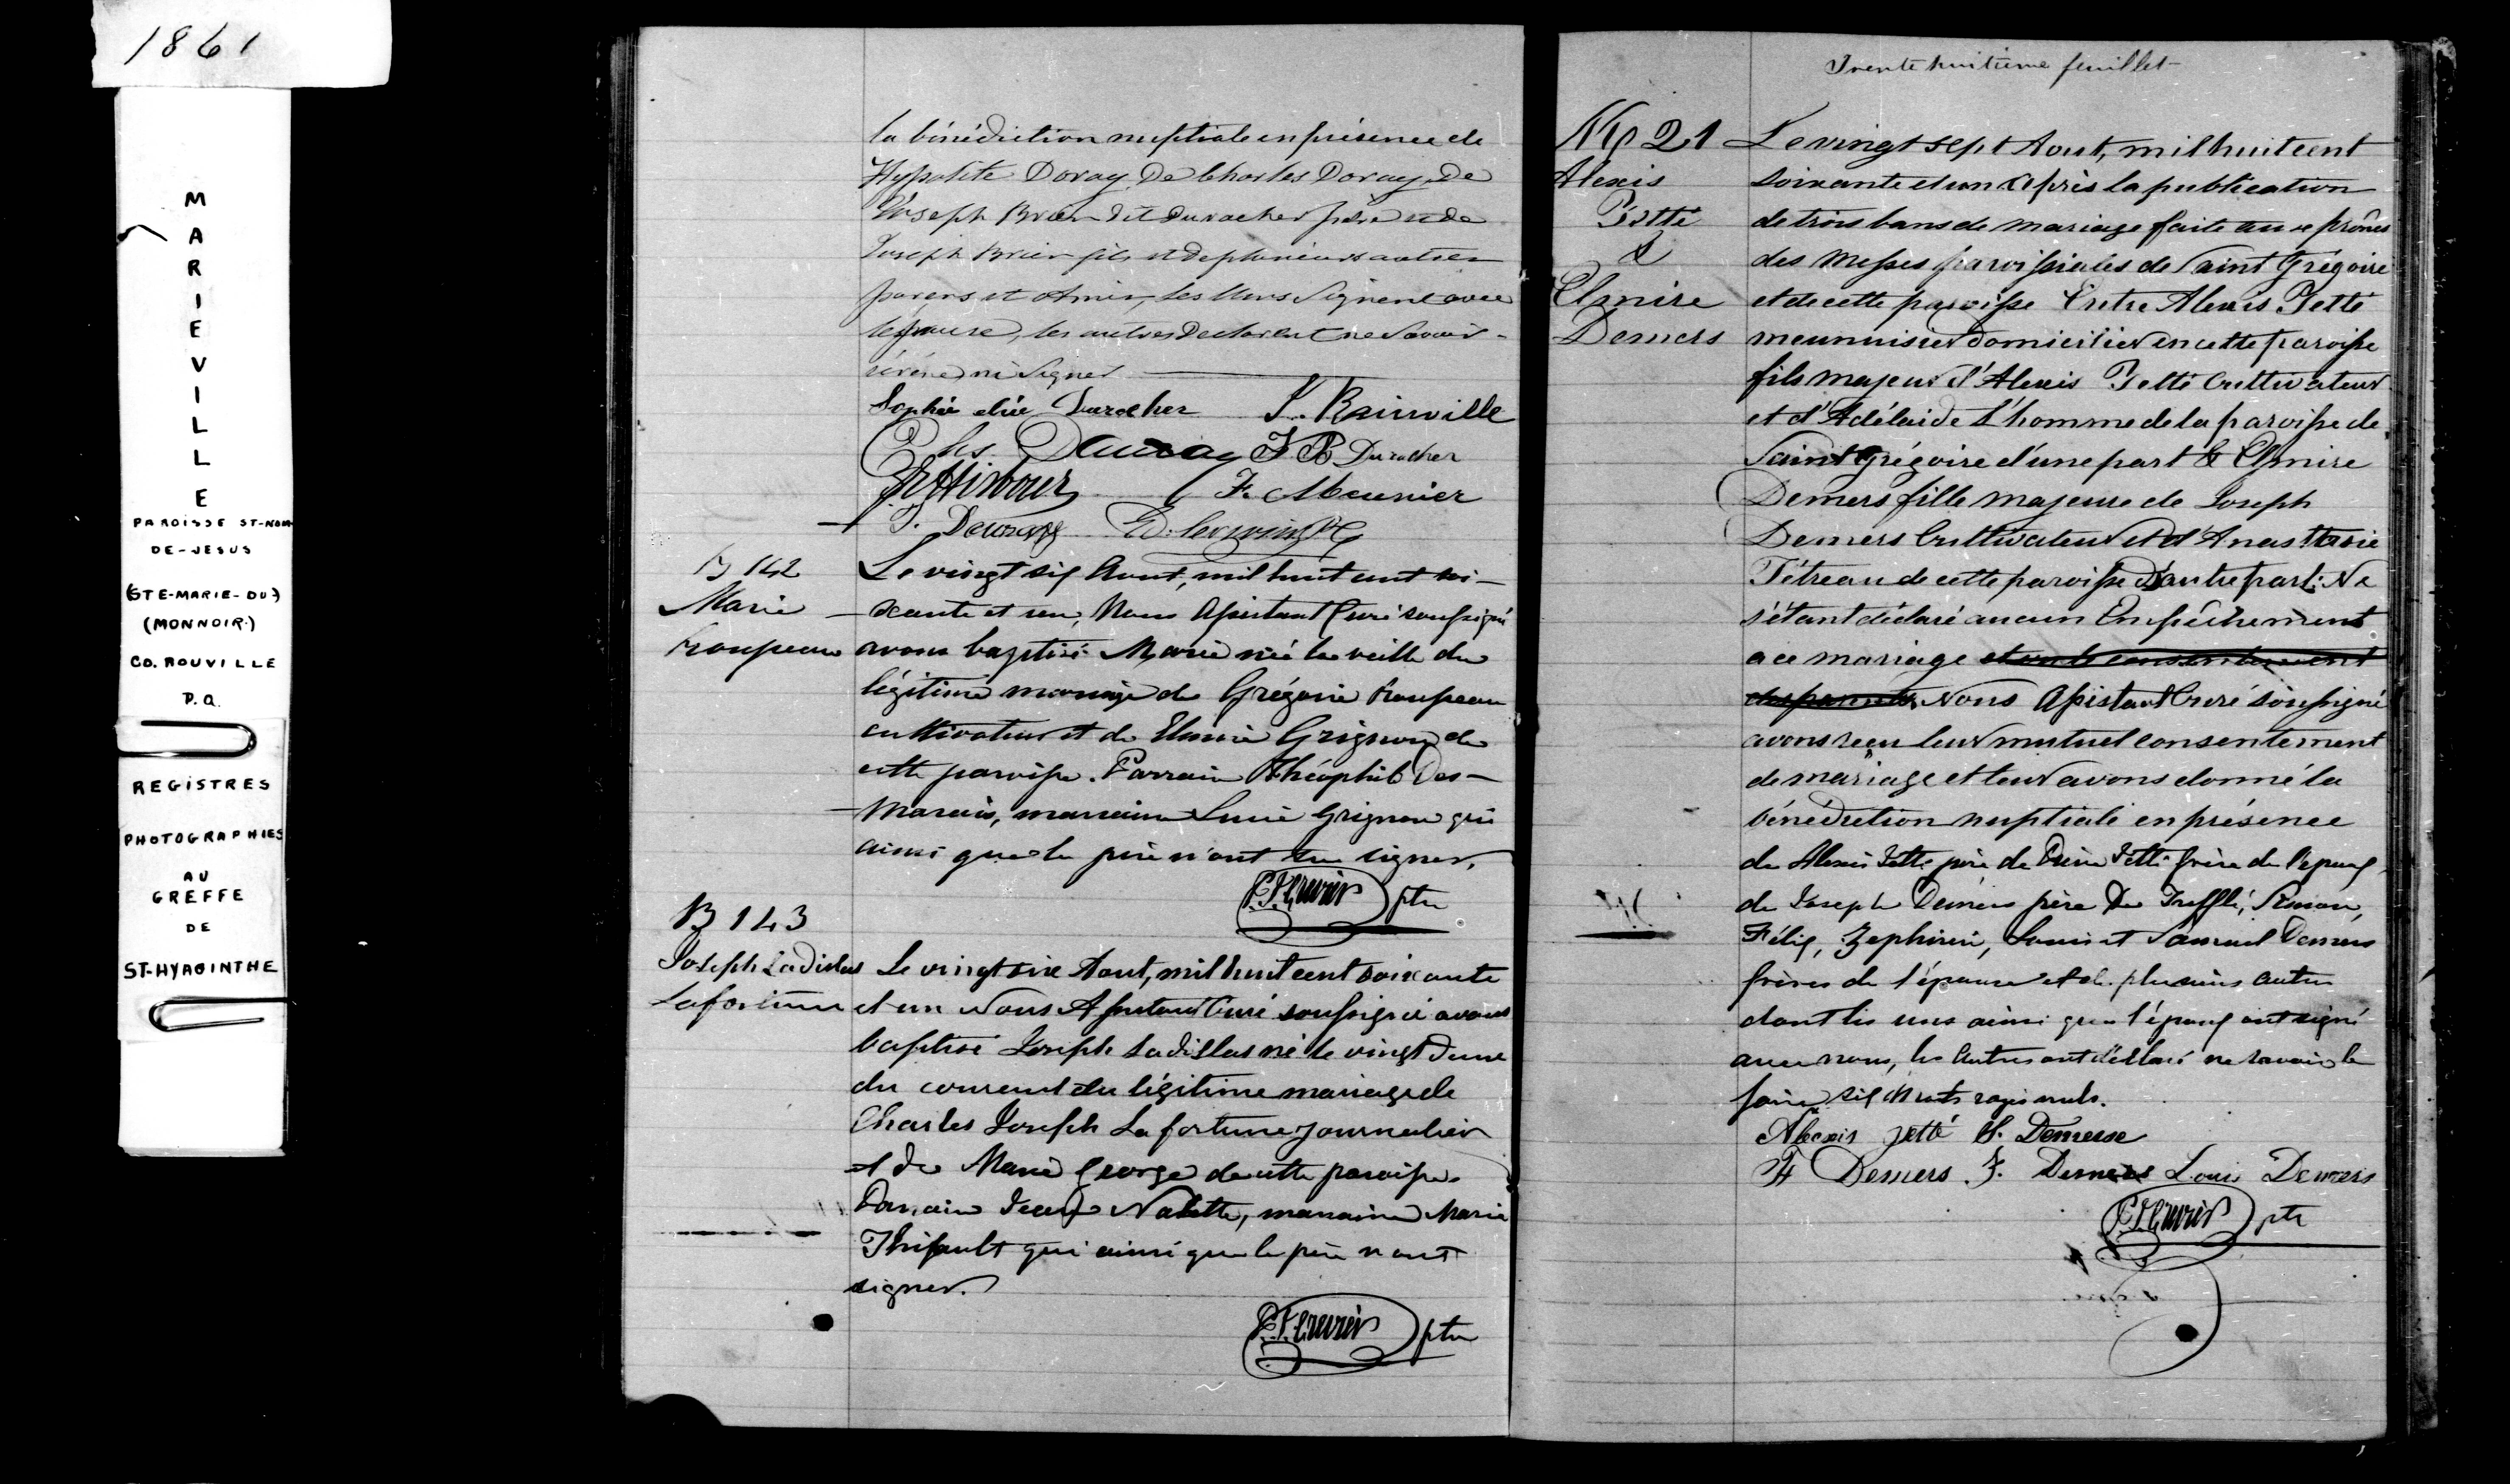 1861
MARIEVILLE
PAROISSE ST-NOM-
DE-JESUS
(STE-MARIE-DU)
(MONNOIR)
CO. ROUVILLE
P.Q.
REGISTRES
PHOTOGRAPHIES
AU
GREFFE
DE
ST-HYACINTHE
la bénédiction nuptiale en présence de
Hypolite Doray, De Charles Doray, De
Joseph Brien dit Durocher père et de
Joseph Brien fils et de plusieurs autres
parens et Amis, les Uns Signent avec
lepouse, les autres Declarent ne Savoir
ni Signer
Sophie Durocher J. Rainville
Chs. J B Durocher
F. Meunier
B 142
Marie
Le vingt six Aout, mil huit cent soi-
xante et un, Nous Assistant Curé soussigné
avons baptisé Marie née la veille du
légitime mariage de Grégoire
cultivateur et de Grignon de
cette paroisse. Parrain Théophile Des-
marais, marraine Lucie Grignon qui
ainsi que le père n'ont su signer.
ptre
B 143
Joseph Ladislas
Lafortune
Le vingt six Aout, mil huit cent soixante
et un Nous Assistant Curé soussigné avons
baptisé Joseph Ladislas né le vingt deux
du courant du légitime mariage de
Charles Joseph Lafortune journalier
et de Marie George de cette paroisse.
Parrain Nalette, marraine Marie
qui ainsi que le père n'ont
signer.
ptre
Trente huitième feuillet
M 21
Alexis
Jetté
&
Elmire
Demers
Le vingt sept Aout, mil huit cent
soixante et un après la publication
de trois bans de mariage faite aux prônes
des Messes paroissiales de Saint Grégoire
et de cette paroisse Entre Alexis Jetté
meunuisier domicilié en cette paroisse
fils majeur d'Alexis Jetté Cultivateur
et d'Adélaide L'homme de la paroisse de
Saint Grégoire d'une part & Elmire
Demers fille majeure de Joseph
Demers Cultivateur et d'Anasthasie
Tétreau de cette paroisse D'autre part: Ne
s'étant déclaré aucun Empêchement
a ce mariage et vu le consentement
des parents, Nous Assistant Curé soussigné
avons reçu leur mutuel consentement
de mariage et leur avons donné la
bénédiction nuptiale en présence
de Alexis Jetté père, de Jetté frère de l'époux,
de Joseph Demers père De Trefflé, Simon,
Félix, Zephirin, Louis et Samuel Demers
frères de l'épouse et de plusieurs autres
dont les uns ainsi que l'époux ont signé
avec nous, les Autres ont déclaré ne savoir le
faire. Six mots rayés nuls.
Alexis Jetté S. Demerse
F Demers J. Demers Louis Demers
ptre